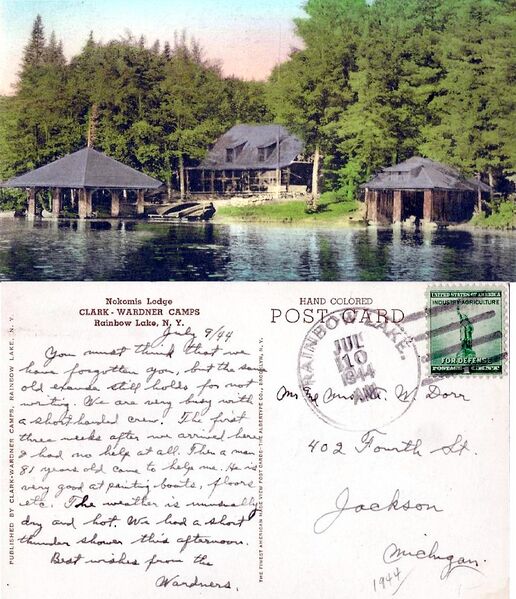 Nokomis Lodge
CLARK - WARDNER CAMPS
Rainbow Lake, N. Y.
July 9/44
You must think that we
have forgotten you, but the same
old excuse still holds for not
writing. We are very busy with
a short handed crew. The first
three weeks after we arrived here
I had no help at all. Then a man
81 years old came to help me. He is
very good at painting boats, floors
etc. The weather is unusually
dry and hot. We had a short
thunder shower this afternoon.
Best wishes from the
Wardners.
PUBLISHED BY CLARK-WARDNER CAMPS, RAINBOW LAKE, N. Y.
THE FINEST AMERICAN MADE VIEW POST CARDS-THE ALBERTYPE CO., BROOKLYN, N.Y.
HAND COLORED
POST CARD
RAINBOW LAKE.
JUL
10
1944
AM
UNITED STATES OF AMERICA
INDUSTRY-AGRICULTURE
FOR DEFENSE
POSTAGE 1¢
Mr. W. Dorr
402 Fourth St.
Jackson
Michigan.
1944